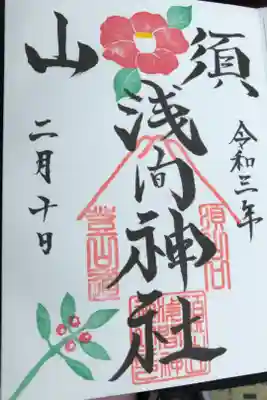 須山
浅間神社
令和三年
二月十日